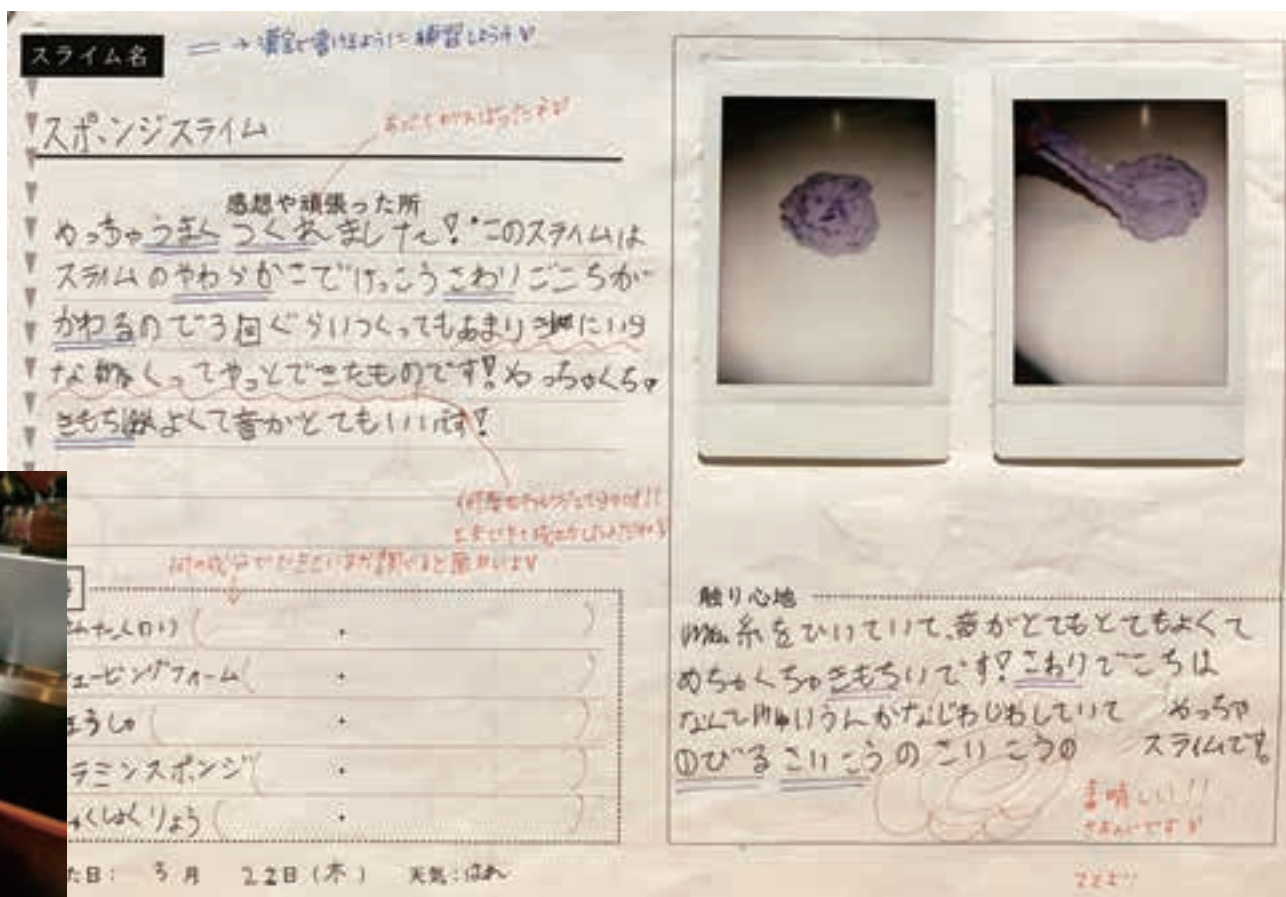 スライム名
→漢字で書けるように練習しよう
スポンジスライム
感想や頑張った所
めっちゃうまくつくれました!このスライムは
スライムのやわらかさでけっこうさわりごこちが
かわるので3回ぐらいつくってもあまり
なくってやっとできたものです!めっちゃくちゃ
きもちよくて音がとてもいいです!
何の成分でできているか調べると面白いよ
ェービングフォーム( ・ )
ラミンスポンジ( ・ )
くしょくりょう( ・ )
た日: 3月 22日(木) 天気:はれ
触り心地
糸をひいていて、音がとてもとてもよくて
めちゃくちゃきもちいです!さわりごこちは
なんていうんかなじわじわしていて めっちゃ
のびるさいこうのさいこうの スライムです。
素晴しい!!